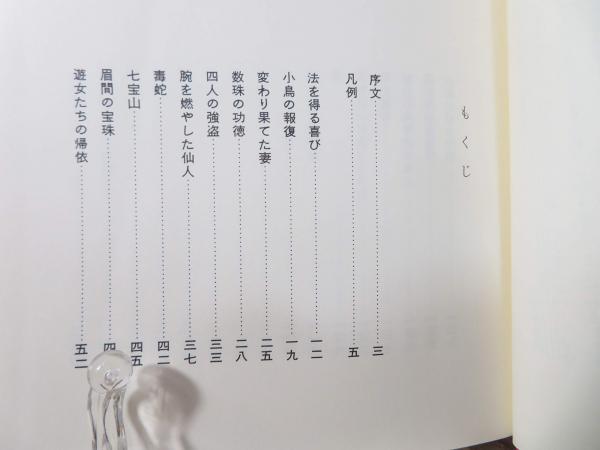 もくじ
序文 三
凡例 五
法を得る喜び 一二
小鳥の報復 一九
変わり果てた妻 二五
数珠の功徳 二八
四人の強盗 三三
腕を燃やした仙人 三七
毒蛇 四二
七宝山 四五
眉間の宝珠 四
遊女たちの帰依 五二